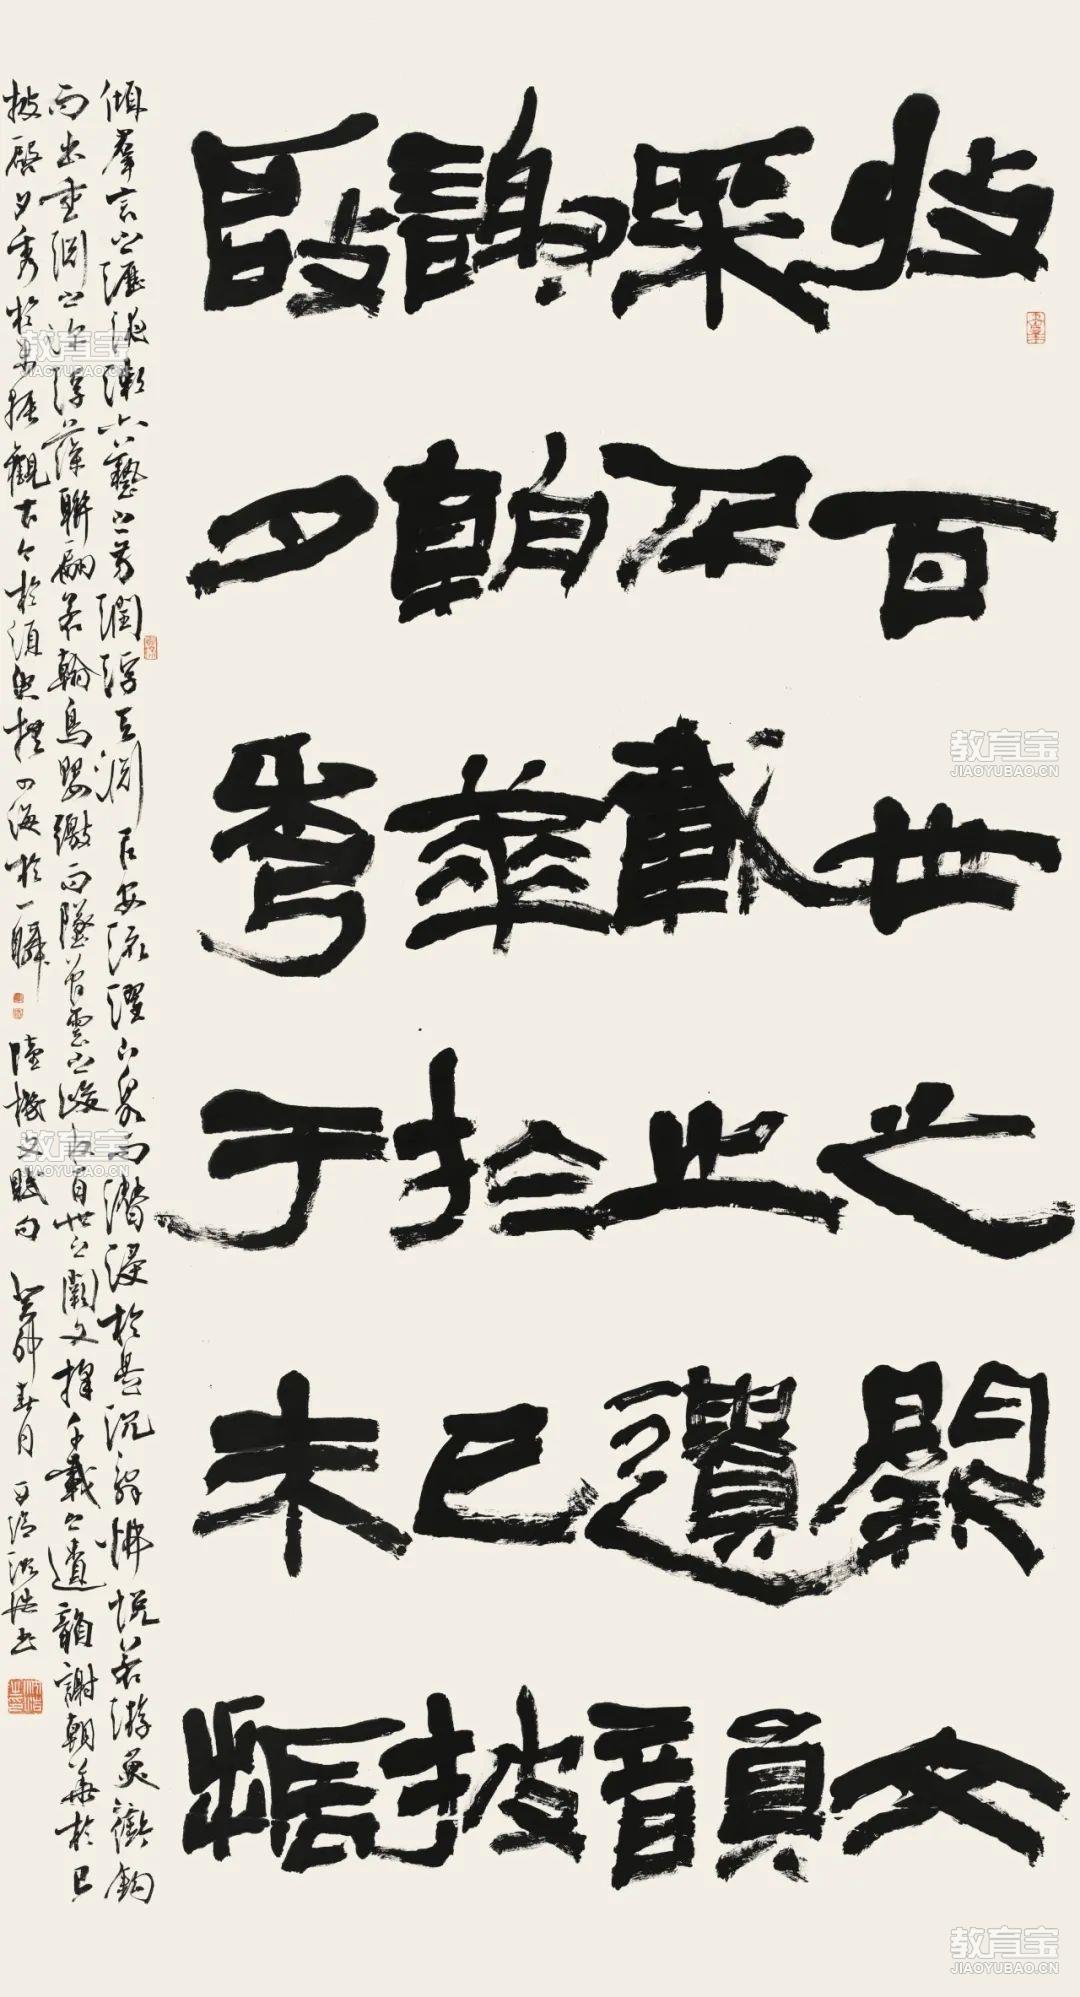 收百世之闕文
采千載之遺韻
謝朝華於已披
啟夕秀于未振
傾羣言之瀝液漱六藝之芳潤浮天淵以安流濯下泉而潛浸於是沉辭怫悅若游魚銜鈎
而出重淵之深浮藻聯翩若翰鳥纓繳而墜曾雲之峻收百世之闕文採千載之遺韻謝朝華於已
披啟夕秀於未振觀古今於須臾撫四海於一瞬 陸機文賦句 癸卯春月
教育宝
JIAOYUBAO.CN
教育宝
JIAOYUBAO.CN
教育宝
JIAOYUBAO.CN
教育宝
JIAOYUBAO.CN